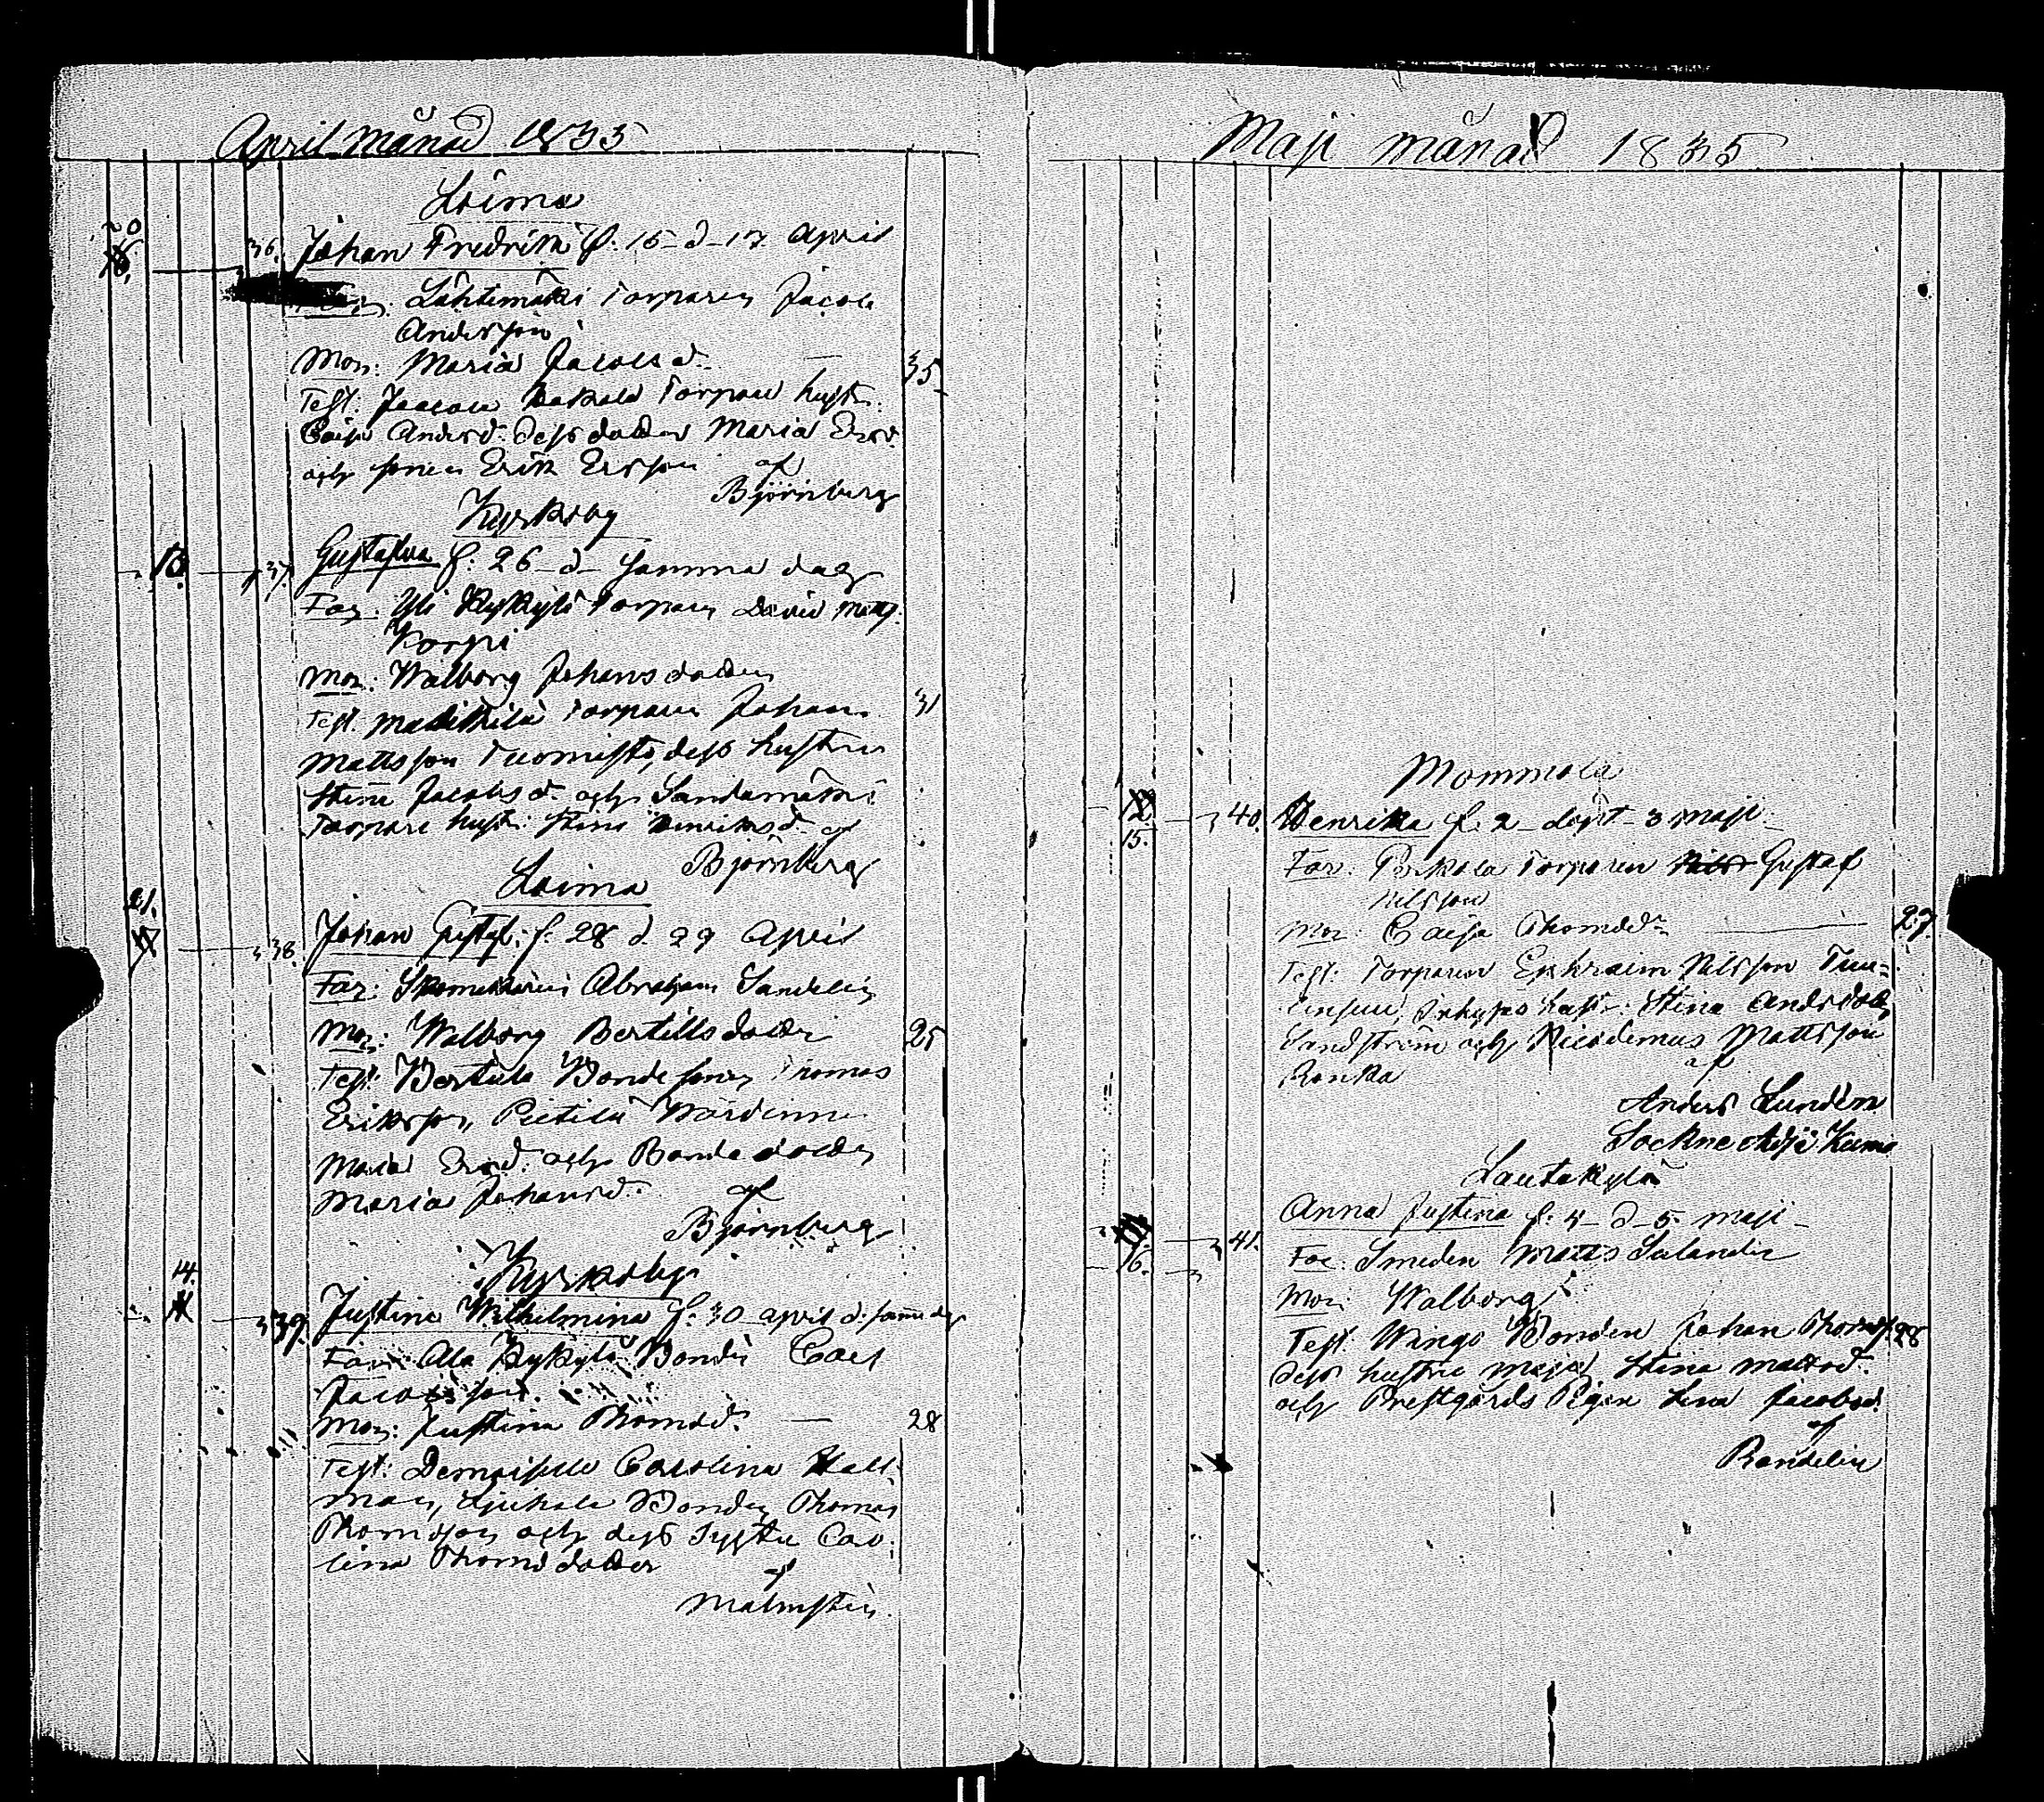 April månad 1835
Loima
20
36. Johan Fredrik f: 15 d 17 April
Lähtemäki Torparen Jacob
Andersson
Mor: Maria Jacobsd. — 35
Test: Jacob Torpare hustr:
Caisa Andersd. dess dotter Maria Ersd.
och sonen Erik Ersson af
Björnberg
Kyrkoby
13. 37. Gustafva f: 26 d samma dag
Far: Yli Kykylä Torparen David Matts.
Korpi
Mor: Walborg Johansdotter
Test. Torparen Johan 31
Mattsson Tuomisto, dess hustru
Stina Jacobsd. och Sandamäki
Torpare hustr: Stina Henriksd. af
Björnberg
Loima
21.
38. Johan Gustaf: f: 28 d. 29 April
Far: Skomakaren Abraham Sandelin
Mor: Walborg Bertillsdotter 25
Test: Bertula Bondesonen Thomas
Eriksson, Pietilä Wärdinnan
Maria Ersd: och Bonde dotter
Maria Johansd: af
Björnberg
Kyrkoby
14.
39. Justina Wilhelmina f: 30 april d: samma dag
Far: Ala Kykylä Bonden Carl
Jacobsson.
Mor: Justina Thomasd: — 28
Test: Demoiselle Carolina Hall-
man, Bonden Thomas
Thomasson och dess Syster Caro-
lina Thomsdotter
af
Malmsten.
Maji månad 1835
Mommola
12. 40. Henrika f. 2 döpt 3 maji
15.
Far: Torparen Gustaf
Nilsson
Mor: Caisa Thomasdr — 27.
Test: Torparen Ephraim Nilsson Tuu-
Inhyses hustr: Stina Andersdotter
Sandström och Nicodemus Mattsson
Ronka af
Anders Lunden
Sockne Adj: i Kumo
Lautakylä
41. Anna Justina f: 4 d 5 maji
16. Far: Smeden Matts Sulander
Mor: Walborg
Test. Wingo Bonden Johan Thomas. 28
dess hustru Maja Stina Mattsd.
och Prestgårds Pigan Lena Jacobsd.
af
Randelin